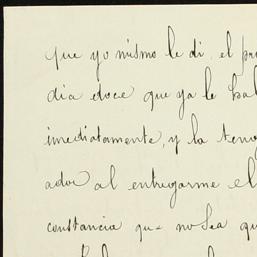 que yo mismo le di, el pr
dia doce que ya le ha
imediatamente, y la teng
ador al entregarme el
constancia que no sea qu